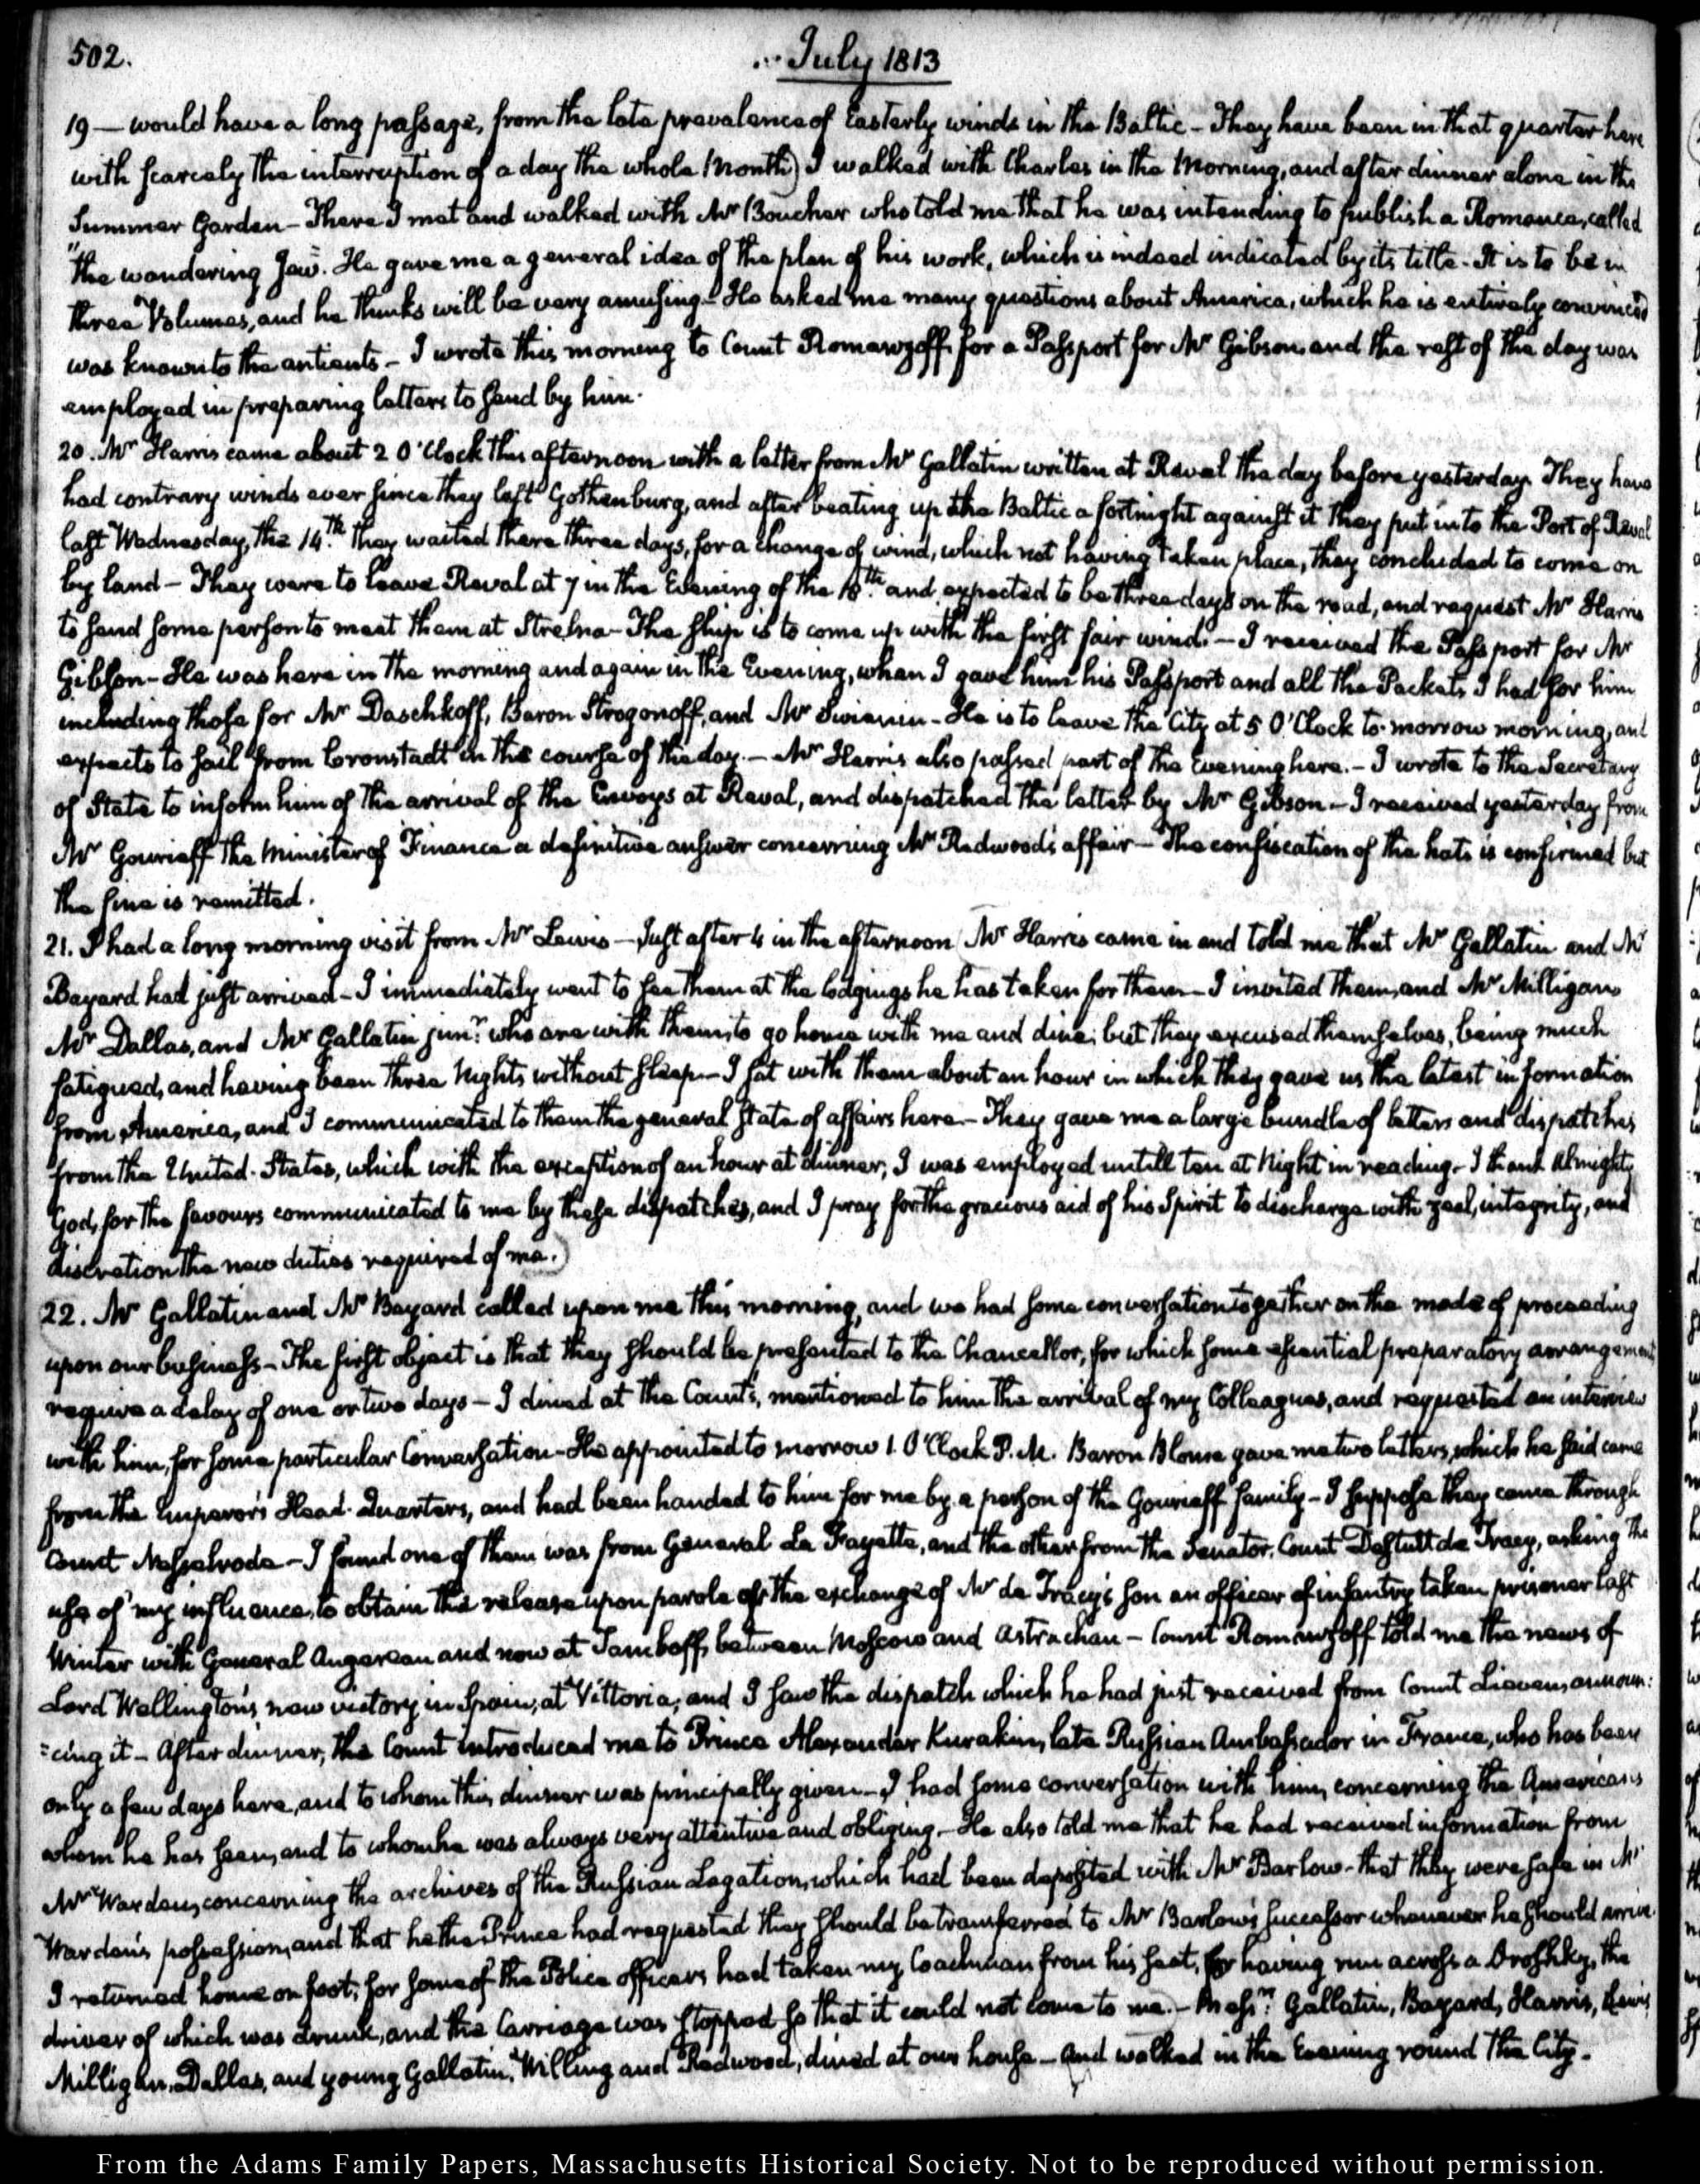 502.
July 1813
19 — would have a long passage, from the late prevalence of Easterly winds in the Baltic – They have been in that quarter here
with scarcely the interruption of a day the whole Month) I walked with Charles in the Morning, and after dinner alone in the
Summer Garden – There I met and walked with Mr Boucher who told me that he was intending to publish a Romance, called
"the wandering Jew". He gave me a general idea of the plan of his work, which is indeed indicated by its title. It is to be in
three Volumes, and he thinks will be very amusing – He asked me many questions about America, which he is entirely convinced
was known to the antients – I wrote this morning to Count Romanzoff, for a Passport for Mr Gibson, and the rest of the day was
employed in preparing letters to send by him.
20. Mr Harris came about 2 O'Clock this afternoon with a letter from Mr Gallatin written at Reval the day before yesterday. They have
had contrary winds ever since they left Gothenburg, and after beating up the Baltic a fortnight against it they put into the Port of Reval
last Wednesday, the 14th. they waited there three days, for a change of wind, which not having taken place, they concluded to come on
by land – They were to leave Reval at 7 in the Evening of the 18th. and expected to be three days on the road, and request Mr Harris
to send some person to meet them at Strelna – The ship is to come up with the first fair wind. – I received the Passport for Mr
Gibson – He was here in the morning and again in the Evening, when I gave him his Passport and all the Packets I had for him
including those for Mr Daschkoff, Baron Strogonoff, and Mr Swinin – He is to leave the City at 5 O'Clock to-morrow morning, and
expects to sail from Cronstadt in the course of the day. – Mr Harris also passed part of the Evening here. – I wrote to the Secretary
of State to inform him of the arrival of the Envoys at Reval, and dispatched the letter by Mr Gibson – I received yesterday from
Mr Gourieff the Minister of Finance a definitive answer concerning Mr Redwood's affair – The confiscation of the hats is confirmed but
the fine is remitted.
21. I had a long morning visit from Mr Lewis – Just after 4 in the afternoon (Mr Harris came in and told me that Mr Gallatin and Mr
Bayard had just arrived – I immediately went to see them at the lodgings he has taken for them – I invited them, and Mr Milligan,
Mr Dallas, and Mr Gallatin junr. who are with them, to go home with me and dine; but they excused themselves, being much
fatigued, and having been three Nights without sleep – I sat with them about an hour in which they gave us the latest information
from America, and I communicated to them the general state of affairs here – They gave me a large bundle of letters and dispatches
from the United-States, which with the exception of an hour at dinner, I was employed untill ten at Night in reading – I thank Almighty
God, for the favours communicated to me by these dispatches, and I pray for the gracious aid of his Spirit to discharge with zeal, integrity, and
discretion the new duties required of me.)
22. Mr Gallatin and Mr Bayard called upon me this morning, and we had some conversation together on the mode of proceeding
upon our business – The first object is that they should be presented to the Chancellor, for which some essential preparatory arrangements
require a delay of one or two days – I dined at the Count's, mentioned to him the arrival of my Colleagues, and requested an interview
with him, for some particular Conversation – He appointed to morrow 1. O'Clock P.M. Baron Blome gave me two letters, which he said came
from the Emperor's Head-Quarters, and had been handed to him for me by a person of the Gourieff family – I suppose they came through
Count Nesselrode – I found one of them was from General La Fayette, and the other from the Senator, Count Destutt de Tracy, asking the
use of my influence, to obtain the release upon parole or the exchange of Mr de Tracy's son an officer of infantry taken prisoner last
Winter with General Augereau and now at Tamboff, between Moscow and Astrachan – Count Romanzoff told me the news of
Lord Wellington's new victory in Spain, at Vittoria, and I saw the dispatch which he had just received from Count Lieven, announ:
:cing it – After dinner, the Count introduced me to Prince Alexander Kurakin, late Russian Ambassador in France, who has been
only a few days here, and to whom this dinner was principally given – I had some conversation with him, concerning the Americans
whom he has seen, and to whom he was always very attentive and obliging – He also told me that he had received information from
Mr Warden, concerning the archives of the Russian Legation, which had been deposited with Mr Barlow – that they were safe in Mr
Warden's possession, and that he the Prince had requested they should be transferred to Mr Barlow's successor whenever he should arrive.
I returned home on foot, for some of the Police officers had taken my Coachman from his seat, for having run across a Droshky, the
driver of which was drunk, and the Carriage was stopped so that it could not come to me. – Messrs. Gallatin, Bayard, Harris, Lewis
Milligan, Dallas, and young Gallatin, Willing and Redwood, dined at our house – and walked in the Evening round the City.
From the Adams Family Papers, Massachusetts Historical Society. Not to be reproduced without permission.